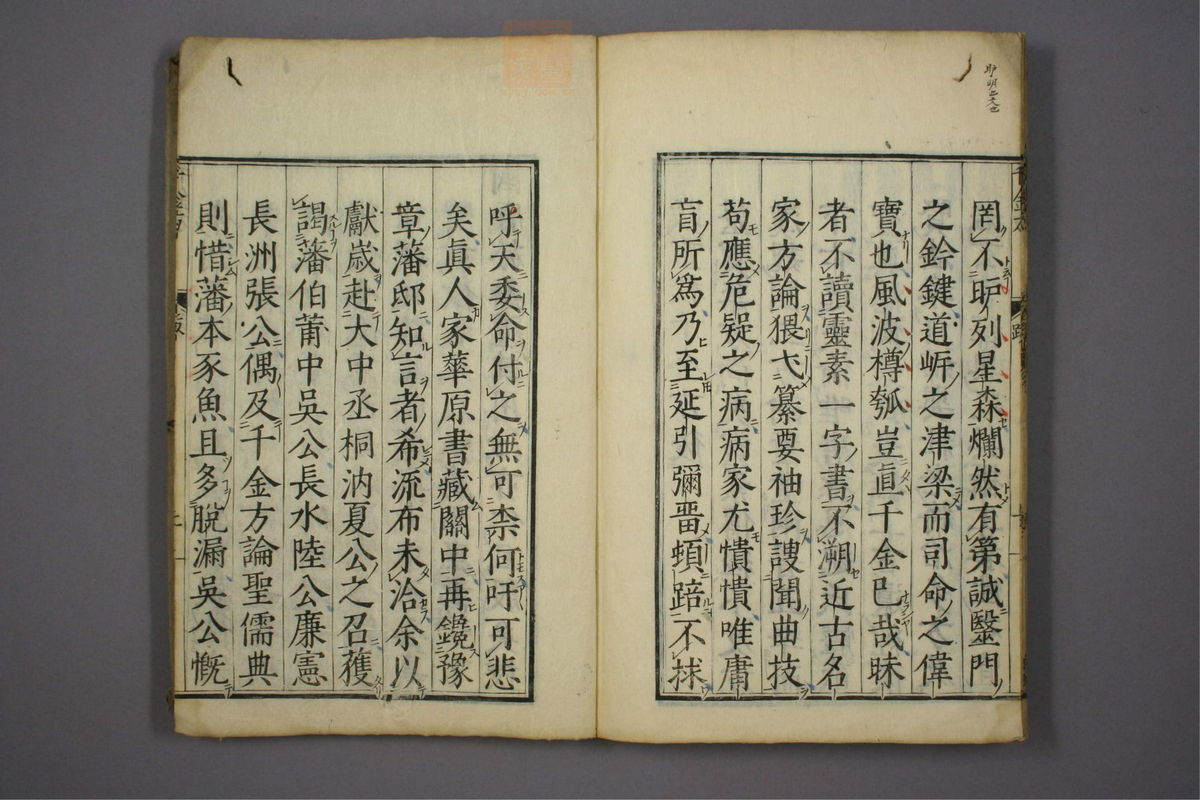 罔不昈列星森爛然有第誠醫門
之鈐鍵道岍之津梁而司命之偉
寶也風波樽瓠豈直千金已哉昧
者不讀靈素一字書不溯近古名
家方論猥弋纂要袖珍謏聞曲技
苟應危疑之病病家尤憒憒唯庸
盲所爲乃至延引彌留頓踣不捄
呼天委命付之無可柰何吁可悲
矣眞人家華原書藏關中再鑱豫
章藩邸知言者希流布未洽余以
獻歲赴大中丞桐汭夏公之召蒦
謁藩伯莆中吳公長水陸公廉憲
長洲張公偶及千金方論聖儒典
則惜藩本豕魚且多脫漏吳公慨